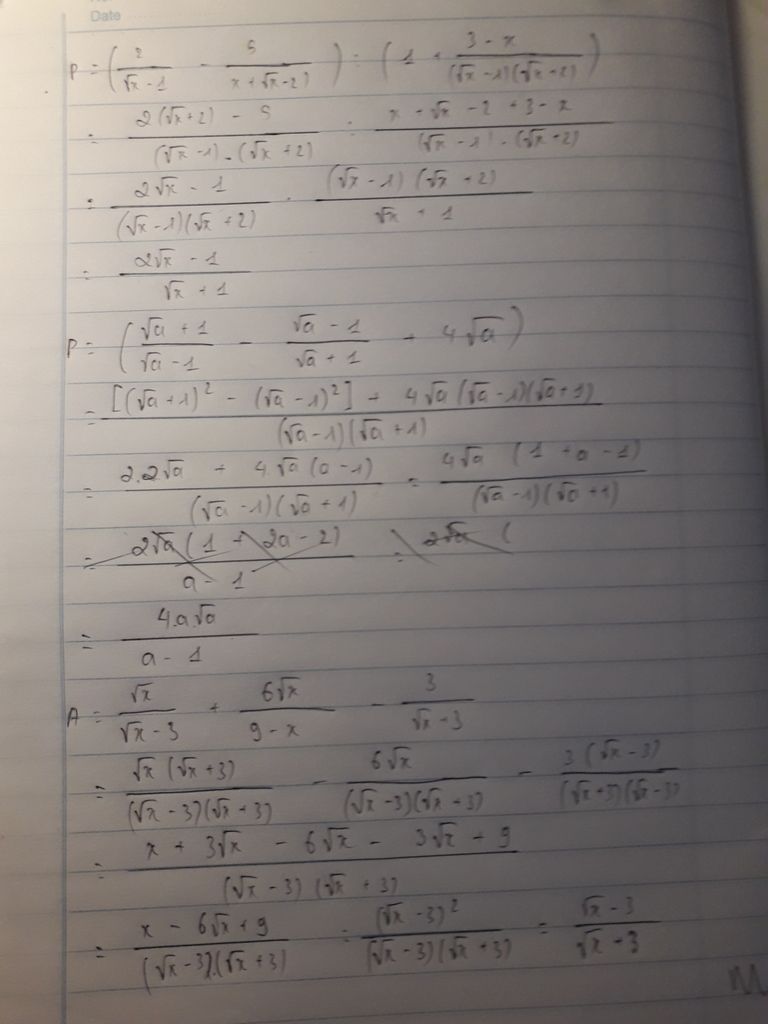 Date
P = (2/(√x - 1) - 5/(x + √x - 2)) : (1 + (3 - x)/((√x - 1)(√x + 2)))
= (2(√x + 2) - 5)/((√x - 1).(√x + 2)) : (x + √x - 2 + 3 - x)/((√x - 1).(√x + 2))
= (2√x - 1)/((√x - 1)(√x + 2)) . ((√x - 1)(√x + 2))/(√x + 1)
= (2√x - 1)/(√x + 1)
P = ((√a + 1)/(√a - 1) - (√a - 1)/(√a + 1) + 4√a)
= ([(√a + 1)² - (√a - 1)²] + 4√a(√a - 1)(√a + 1))/((√a - 1)(√a + 1))
= (2.2√a + 4.√a(a - 1))/((√a - 1)(√a + 1)) = (4√a (1 + a - 1))/((√a - 1)(√a + 1))
= (2√a(1 + 2a - 2))/(a - 1) = 2√a (
= (4.a.√a)/(a - 1)
A = √x/(√x - 3) + 6√x/(9 - x) - 3/(√x + 3)
= (√x(√x + 3))/((√x - 3)(√x + 3)) - 6√x/((√x - 3)(√x + 3)) - (3(√x - 3))/((√x + 3)(√x - 3))
= (x + 3√x - 6√x - 3√x + 9)/((√x - 3)(√x + 3))
= (x - 6√x + 9)/((√x - 3).(√x + 3)) = (√x - 3)²/((√x - 3)(√x + 3)) = (√x - 3)/(√x + 3)